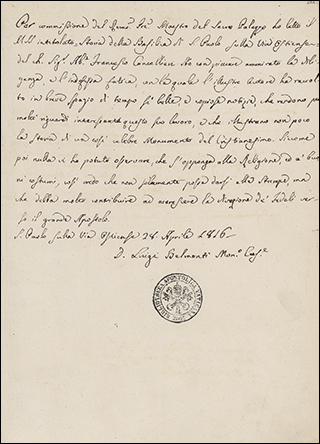 Per commissione del Rmo Pre Maestro del Sacro Palazzo ho letto il
MSS intitolato, Storia della Basilica di S. Paolo sulla Via Ostiense
del ch. Sigr Abe Francesco Cancellieri. Ho con piacere ammirato la dili-
genza, e l'indefessa fatica, con la quale l'illustre Autore ha raccol-
to in breve spazio di tempo sì belle, e copiose notizie, che rendono per
molti riguardi interessante questo suo lavoro, e che illustrano non poco
la storia di un così celebre Monumento del Cristianesimo. Siccome
poi nulla vi ho potuto osservare, che si opponga alla Religione, ed a' buo-
ni costumi, così credo che non solamente possa darsi alle Stampe, ma
che debba molto contribuire ad accrescere la divozione de' Fedeli ver-
so il grande Apostolo.
S. Paolo sulla Via Ostiense 28 Aprile 1816
D. Luigi Belmonti Mon.o Cas.e
BIBLIOTHECA APOSTOLICA VATICANA